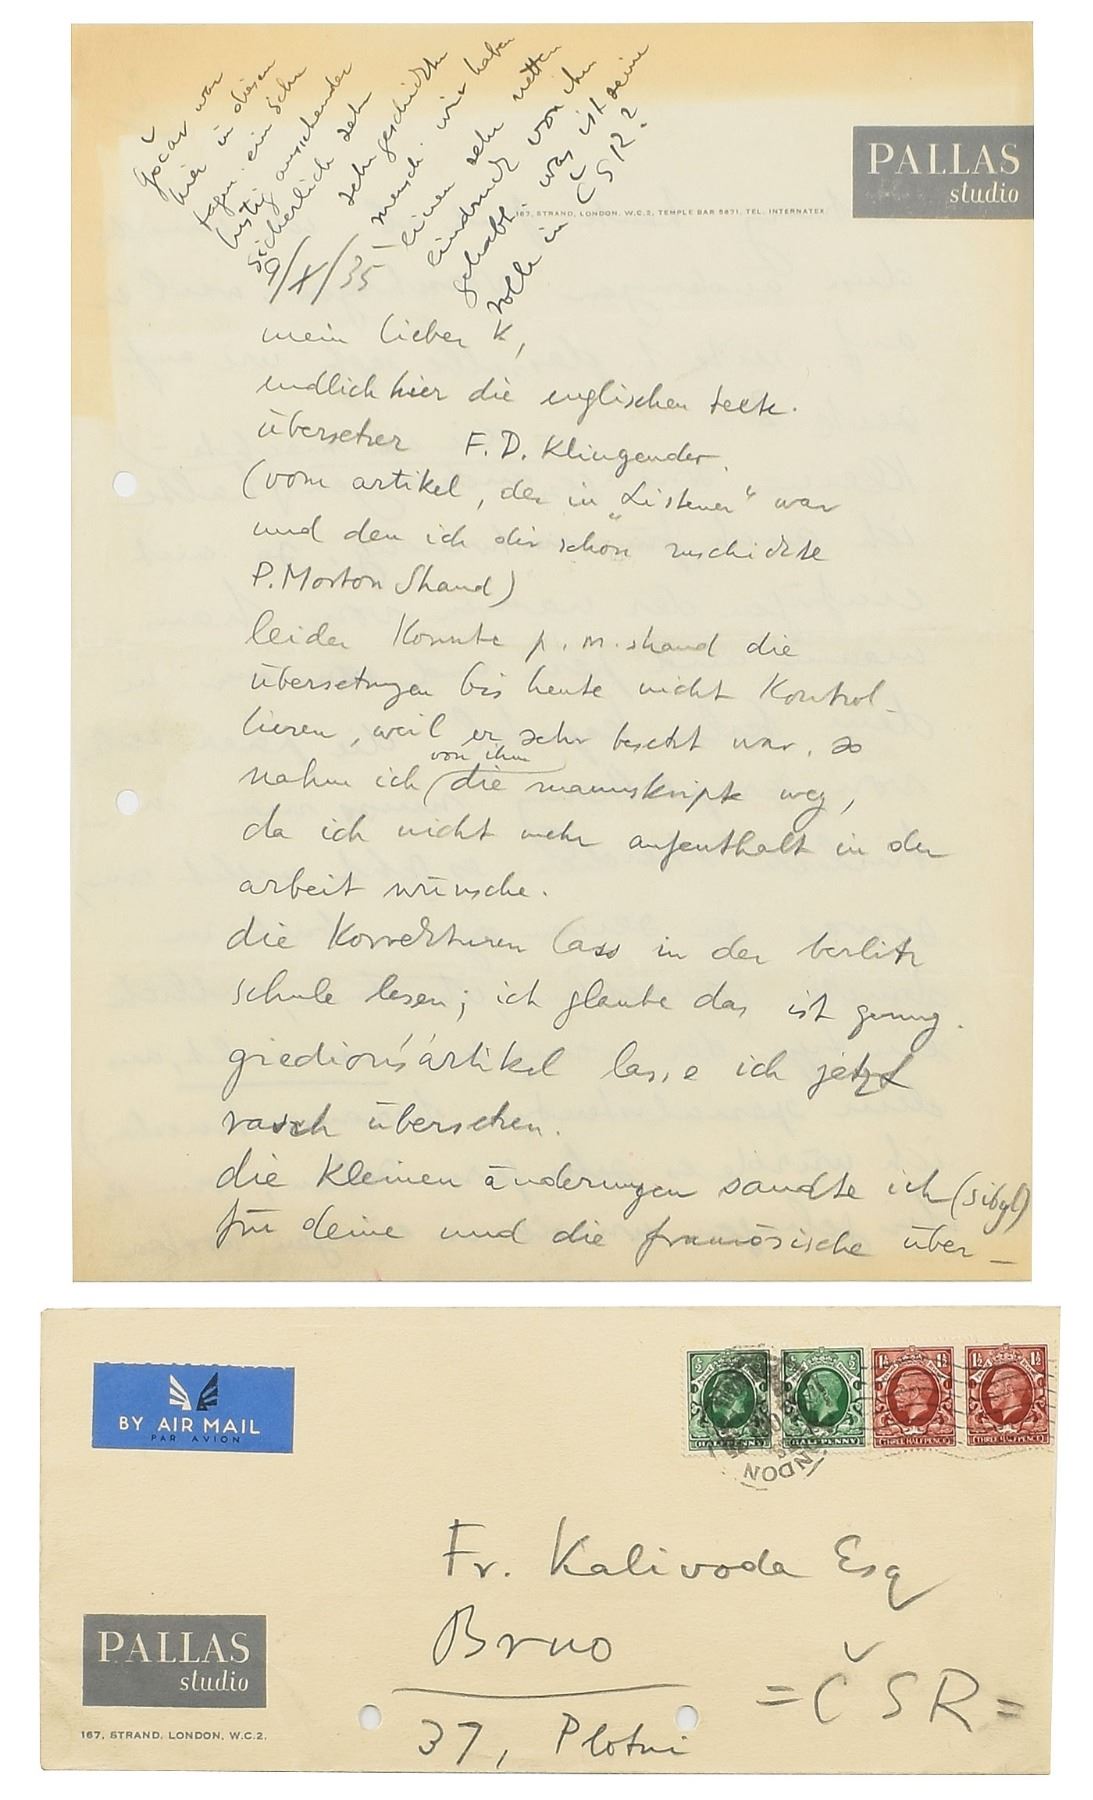 Gočar war
hier in diesen
tagen. ein sehr
lustig aussehender
sicherlich sehr
sehr geschickter
mensch. wir haben
einen sehr netten
eindruck von ihm
gehabt. was ist seine
rolle in ČSR?
PALLAS
studio
167, STRAND, LONDON, W.C.2, TEMPLE BAR 5871. TEL. INTERNATEX
9/X/35
mein lieber K,
endlich hier die englischen texte.
übersetzer F. D. Klingender.
(vom artikel, der in „Listener“ war
und den ich dir schon zuschickte
P. Morton Shand)
leider konnte p. m. shand die
übersetzungen bis heute nicht kontrol-
lieren, weil er sehr besetzt war. so
nahm ich von ihm die manuskripte weg,
da ich nicht mehr aufenthalt in der
arbeit wünsche.
die korrekturen lass in der berlitz
schule lesen; ich glaube das ist genug.
giedion's artikel lasse ich jetzt
rasch übersetzen.
die kleinen änderungen sandte ich (sibyl)
für deine und die französische über-
BY AIR MAIL
PAR AVION
HALFPENNY HALFPENNY THREE HALFPENCE THREE HALFPENCE
LONDON
Fr. Kalivoda Esq
Brno
37, Plotni
= ČSR =
PALLAS
studio
167, STRAND, LONDON, W.C.2.